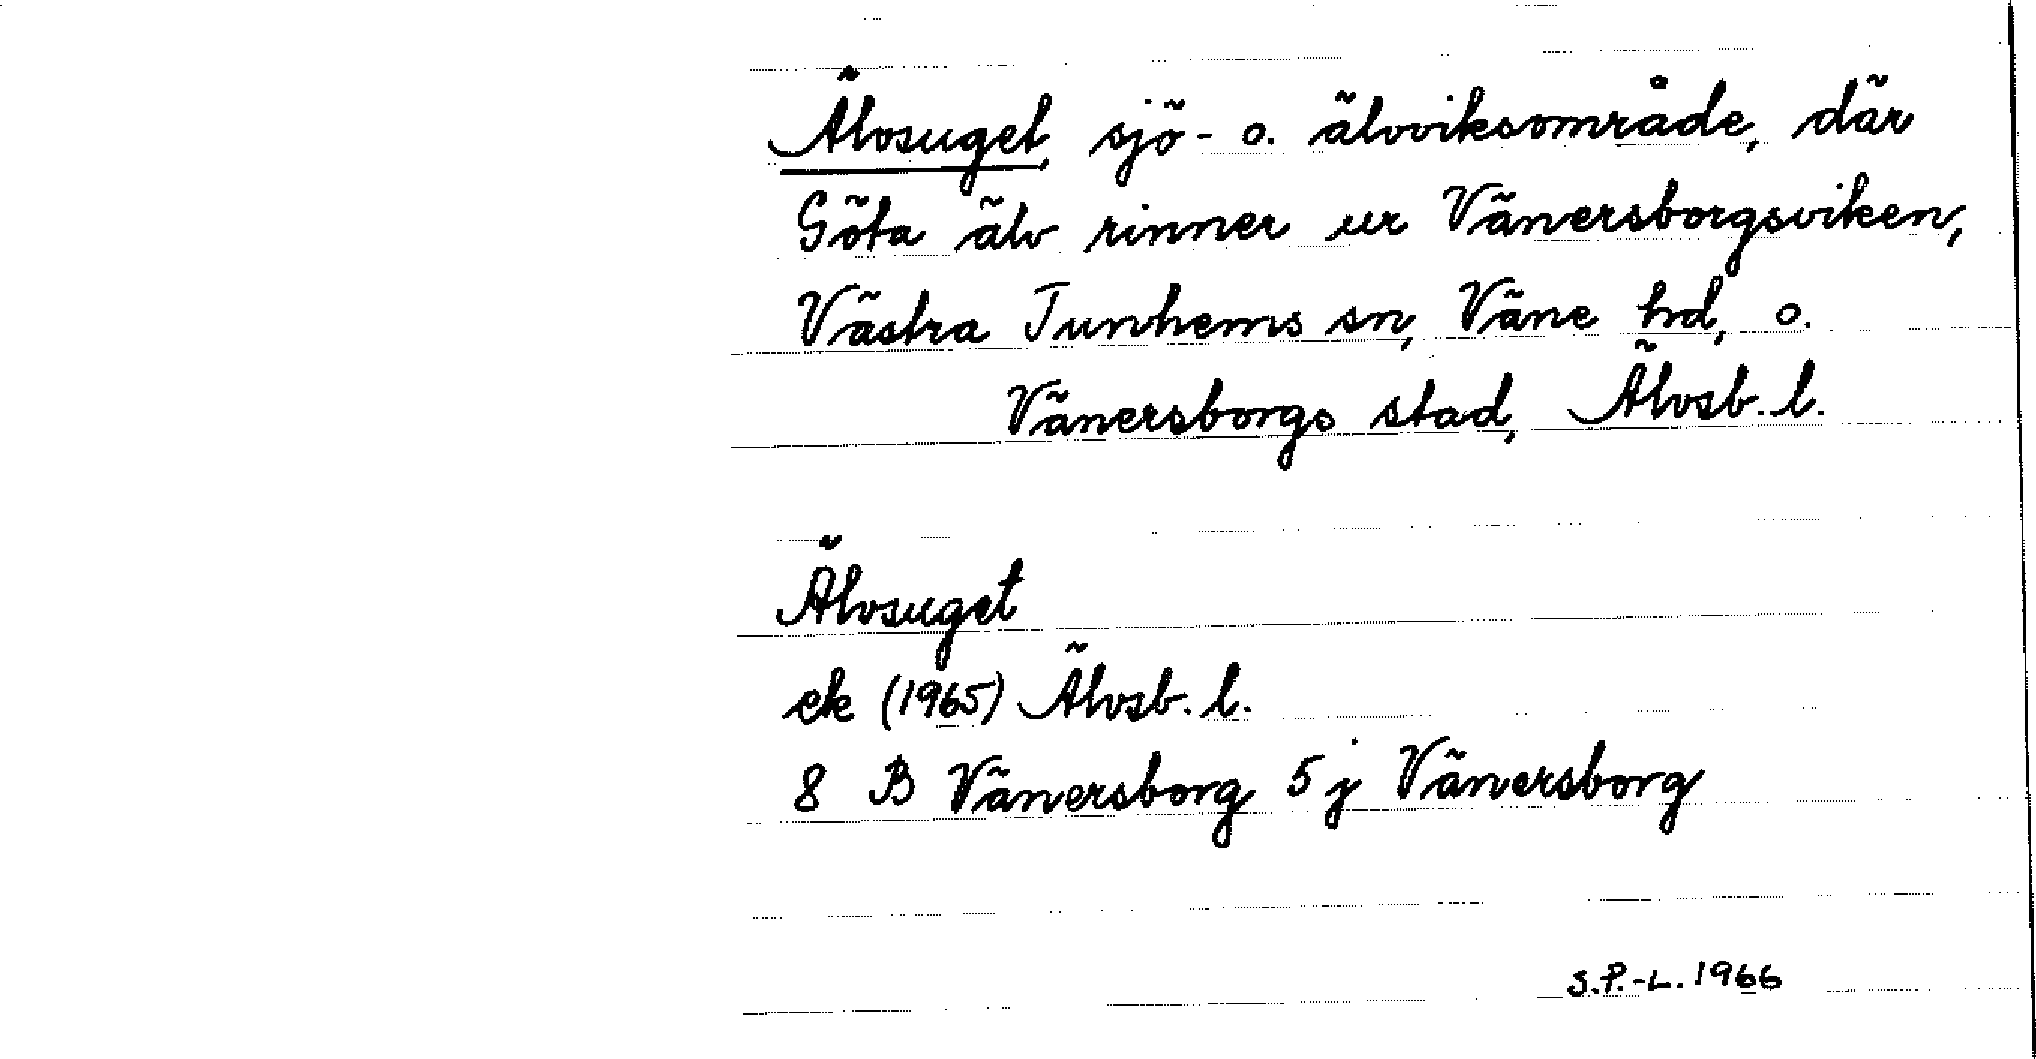 Älvsuget, sjö- o. älvviksområde, där
Göta älv rinner ur Vänersborgsviken,
Västra Tunhems sn, Väne hd, o.
Vänersborgs stad, Älvsb. l.
Älvsuget
ek (1965) Älvsb. l.
8 B Vänersborg 5 j Vänersborg
S.P.-L. 1966